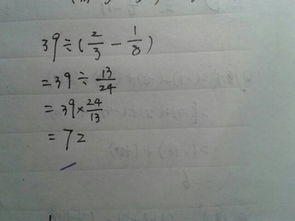 39÷(2/3-1/8)
=39÷13/24
=39×24/13
=72